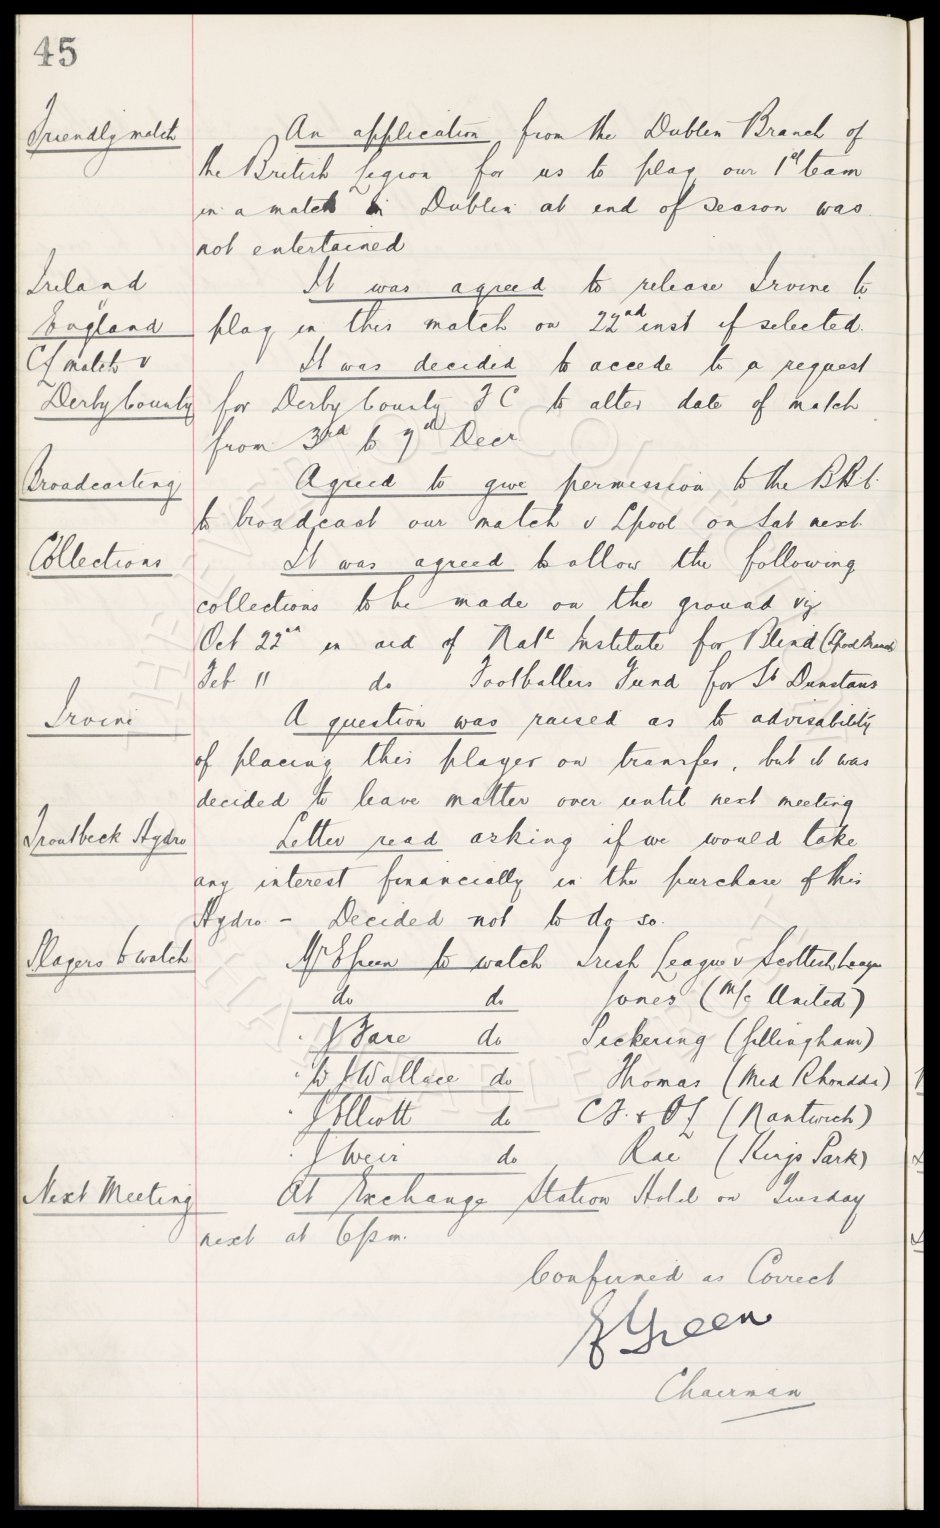 45
Friendly match An application from the Dublin Branch of
the British Legion for us to play our 1st team
in a match in Dublin at end of season was
not entertained
Ireland It was agreed to release Irvine to
v
England play in this match on 22nd inst if selected.
CL match v It was decided to accede to a request
Derby County for Derby County F C to alter date of match
from 3rd to 7th Decr
Broadcasting Agreed to give permission to the BBC
to broadcast our match v Lpool on Sat next.
Collections It was agreed to allow the following
collections to be made on the ground viz
Oct 22nd in aid of Natl Institute for Blind (Lpool Branch)
Feb 11 do Footballers Fund for St Dunstans
Irvine A question was raised as to advisability
of placing this player on transfer, but it was
decided to leave matter over until next meeting
Troutbeck Hydro Letter read asking if we would take
any interest financially in the purchase of this
Hydro - Decided not to do so.
Players to watch Mr E Green to watch Irish League v Scottish League
do do Jones (M/c United)
" J Fare do Pickering (Gillingham)
" W J Wallace do Thomas (Mid Rhondda)
" J Elliott do CF. & OL (Nantwich)
" J Weir do Rae (Kings Park)
Next Meeting At Exchange Station Hotel on Tuesday
next at 6 pm.
Confirmed as Correct
E Green
Chairman
THE EVERTON COLLECTION
CHARITABLE TRUST